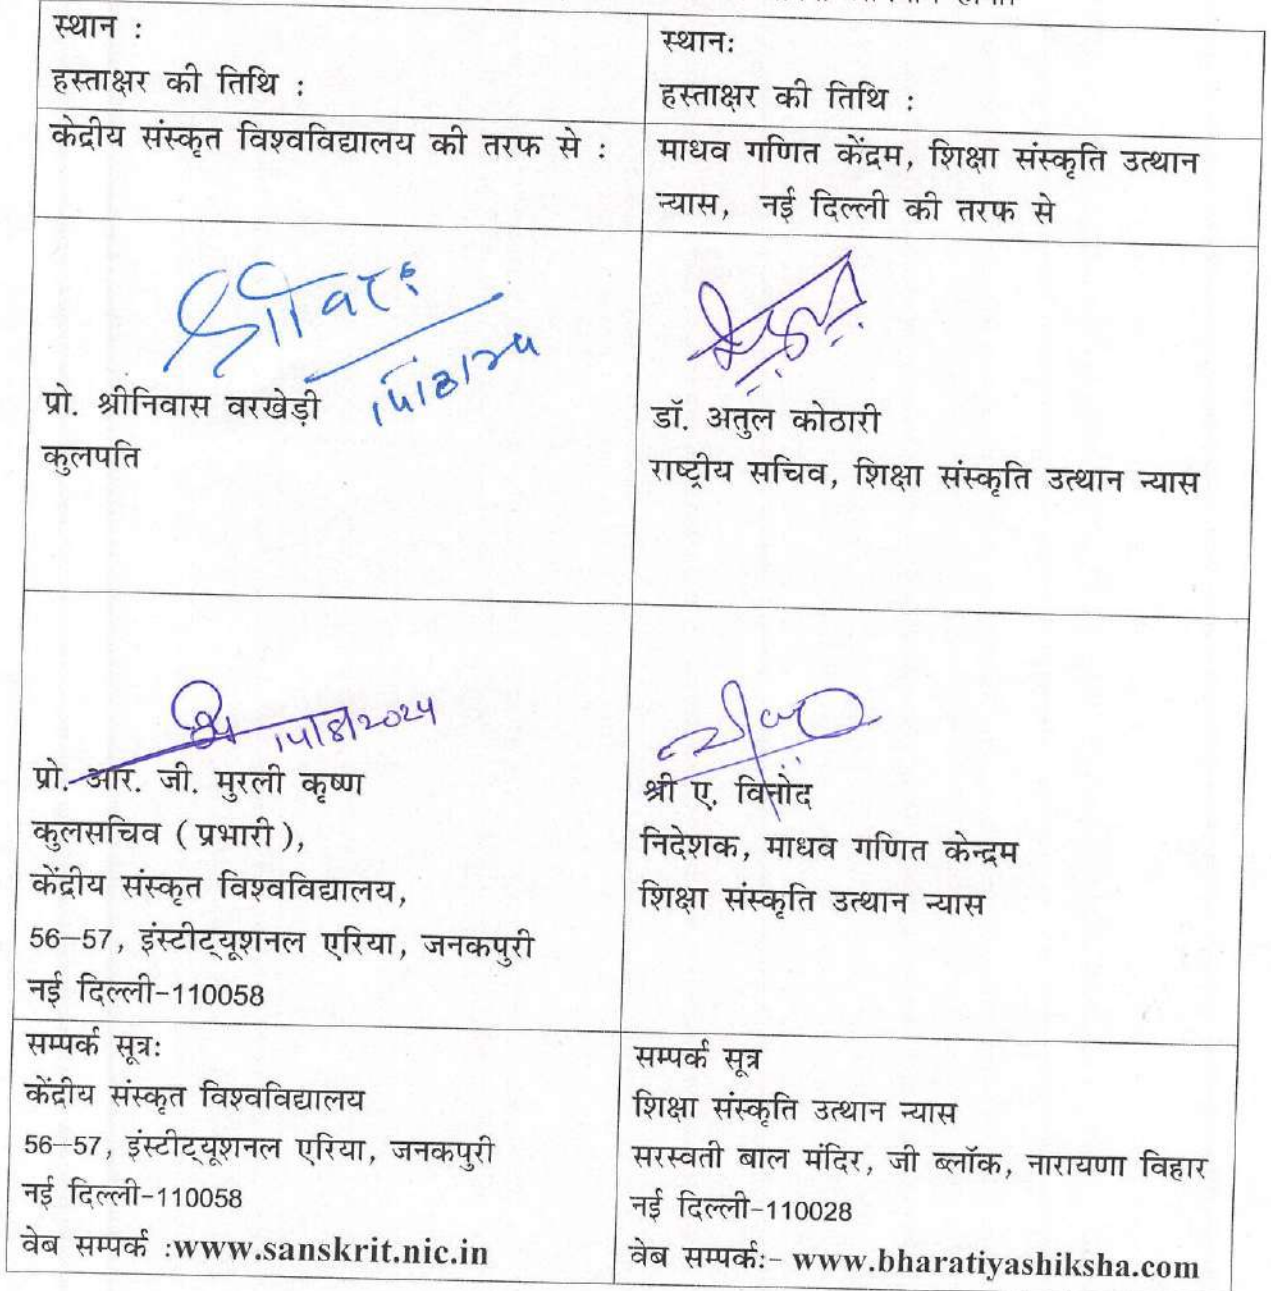 स्थान :
हस्ताक्षर की तिथि :
स्थान:
हस्ताक्षर की तिथि :
केद्रीय संस्कृत विश्वविद्यालय की तरफ से :
माधव गणित केंद्रम, शिक्षा संस्कृति उत्थान
न्यास, नई दिल्ली की तरफ से
14/8/24
प्रो. श्रीनिवास वरखेड़ी
कुलपति
डॉ. अतुल कोठारी
राष्ट्रीय सचिव, शिक्षा संस्कृति उत्थान न्यास
14/8/2024
प्रो. आर. जी. मुरली कृष्ण
कुलसचिव (प्रभारी),
केंद्रीय संस्कृत विश्वविद्यालय,
56–57, इंस्टीट्यूशनल एरिया, जनकपुरी
नई दिल्ली-110058
श्री ए. विनोद
निदेशक, माधव गणित केन्द्रम
शिक्षा संस्कृति उत्थान न्यास
सम्पर्क सूत्र:
केंद्रीय संस्कृत विश्वविद्यालय
56–57, इंस्टीट्यूशनल एरिया, जनकपुरी
नई दिल्ली-110058
वेब सम्पर्क :www.sanskrit.nic.in
सम्पर्क सूत्र
शिक्षा संस्कृति उत्थान न्यास
सरस्वती बाल मंदिर, जी ब्लॉक, नारायणा विहार
नई दिल्ली-110028
वेब सम्पर्क:- www.bharatiyashiksha.com